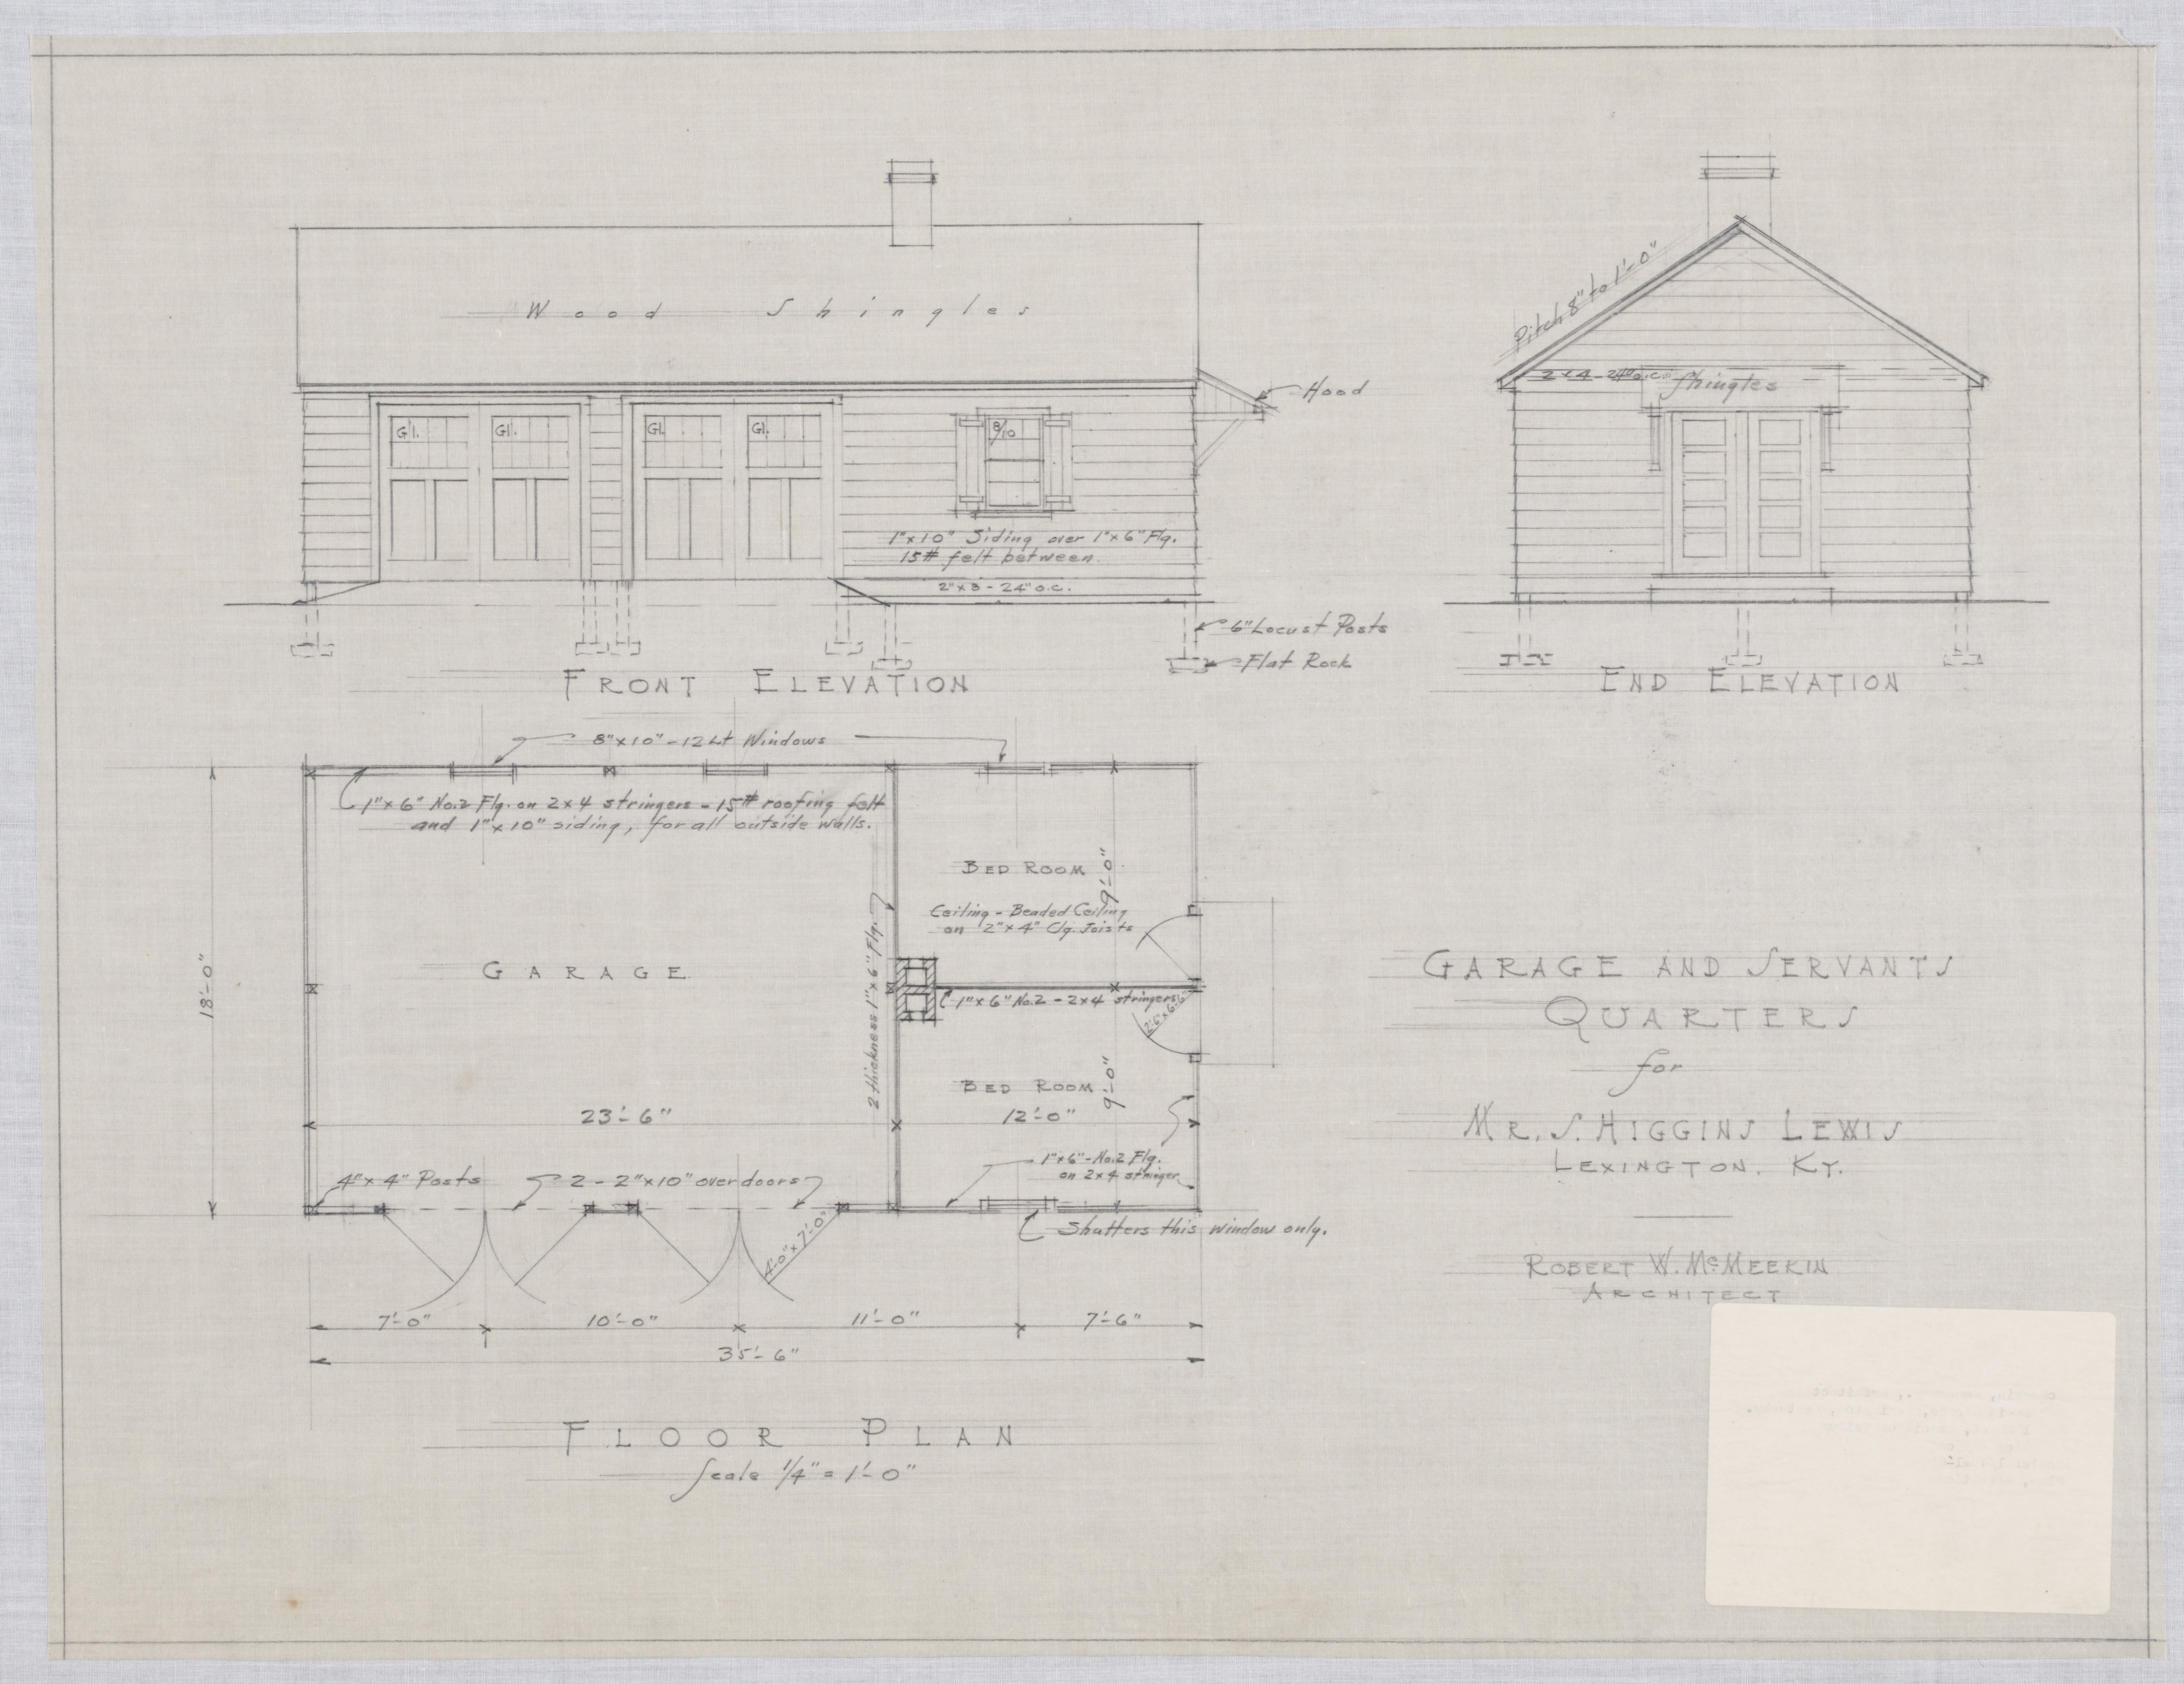 Wood Shingles
Gl. Gl. Gl. Gl.
8/10
Hood
1"x10" Siding over 1"x6" Flg.
15# felt between.
2"x8 - 24" o.c.
6" Locust Posts
Flat Rock
FRONT ELEVATION
Pitch 8" to 1'-0"
2x4-24" o.c.
Shingles
END ELEVATION
8"x10"-12 Lt Windows
1"x6" No.2 Flg. on 2x4 stringers - 15# roofing felt
and 1"x10" siding, for all outside walls.
18'-0"
BED ROOM
9'-0"
Ceiling - Beaded Ceiling
on 2"x4" Clg. Joists
GARAGE
2 thickness 1"x6" Flg.
1"x6" No.2 - 2x4 stringers
BED ROOM
9'-0"
23'-6"
12'-0"
1"x6"-No.2 Flg.
on 2x4 stringer
4"x4" Posts
2 - 2"x10" over doors
Shutters this window only.
4'-0"x7'-0"
7'-0"
10'-0"
11'-0"
7'-6"
35'-6"
FLOOR PLAN
Scale 1/4" = 1'-0"
GARAGE AND SERVANTS
QUARTERS
for
MR. S. HIGGINS LEWIS
LEXINGTON. KY.
ROBERT W. McMEEKIN
ARCHITECT